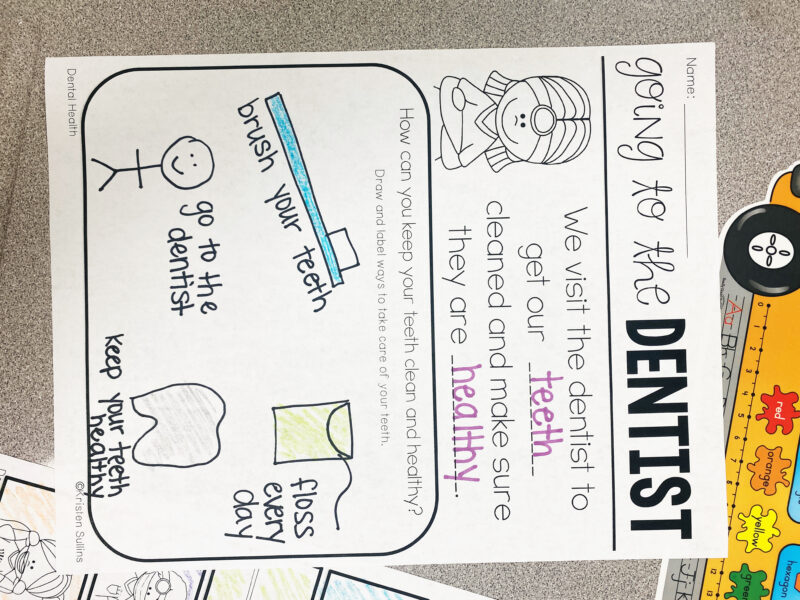 Name:
going to the DENTIST
We visit the dentist to
get our teeth
cleaned and make sure
they are healthy.
How can you keep your teeth clean and healthy?
Draw and label ways to take care of your teeth.
brush your teeth
floss
every
day
go to the
dentist
keep your teeth
healthy
Dental Health
©Kristen Sullins
0 1 2 3 4 5 6 7
12 13
Aa Bb C
red
orange
yellow
green
hexagon